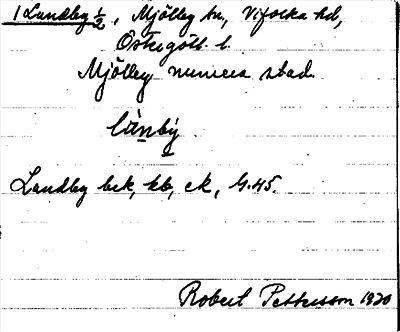 1 Landby 1/2, Mjölby sn, Vifolka hd,
Östergötl. l.
Mjölby numera stad.
lánby
Landby bek, kb, ek, G.45.
Robert Pettersson 1920